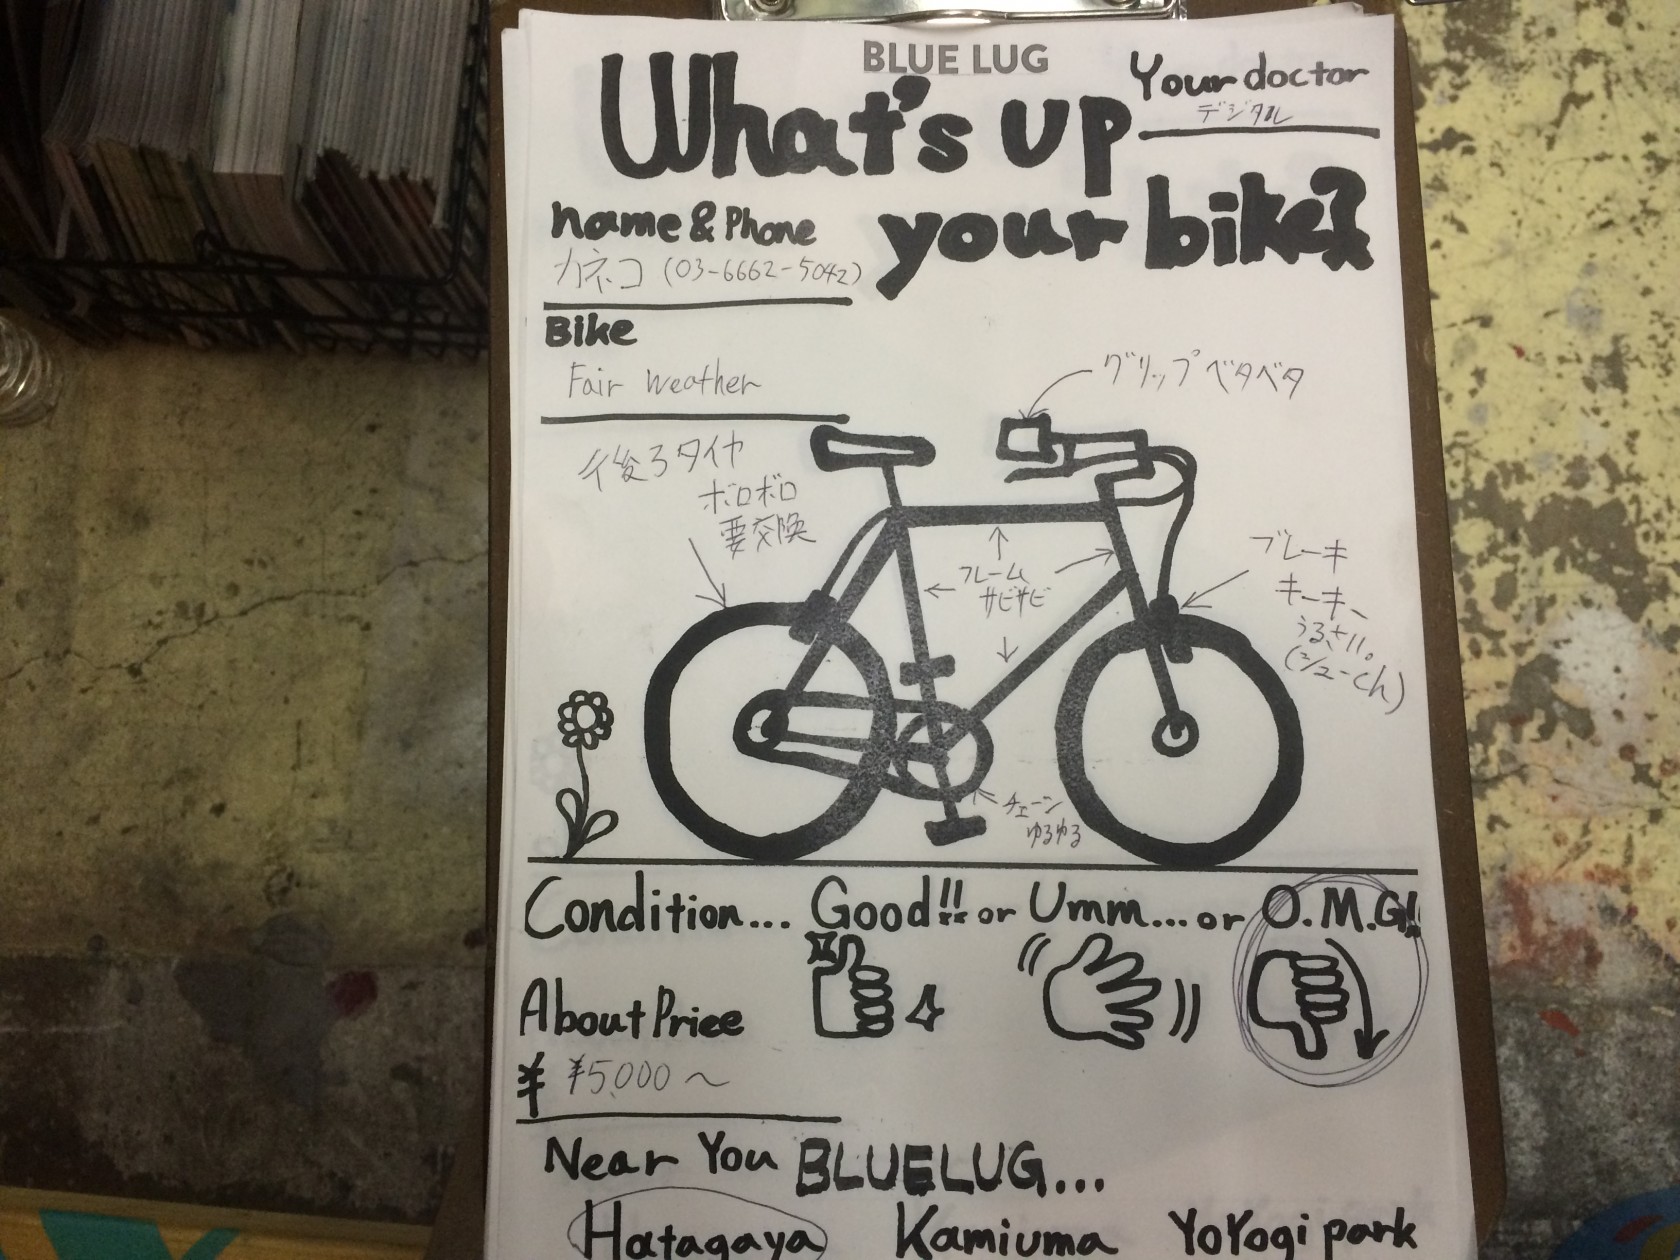 BLUE LUG
What's up
your bike?
Your doctor
デジタル
name & Phone
カネコ (03-6662-5042)
Bike
Fair Weather
グリップベタベタ
後ろタイヤ
ボロボロ
要交換
フレーム
サビサビ
ブレーキ
キーキー
うるさい。
チェーン
ゆるゆる
Condition... Good!! or Umm... or O.M.G!!
About Price
¥ ¥5,000～
Near You BLUELUG...
Hatagaya Kamiuma YoYogi park